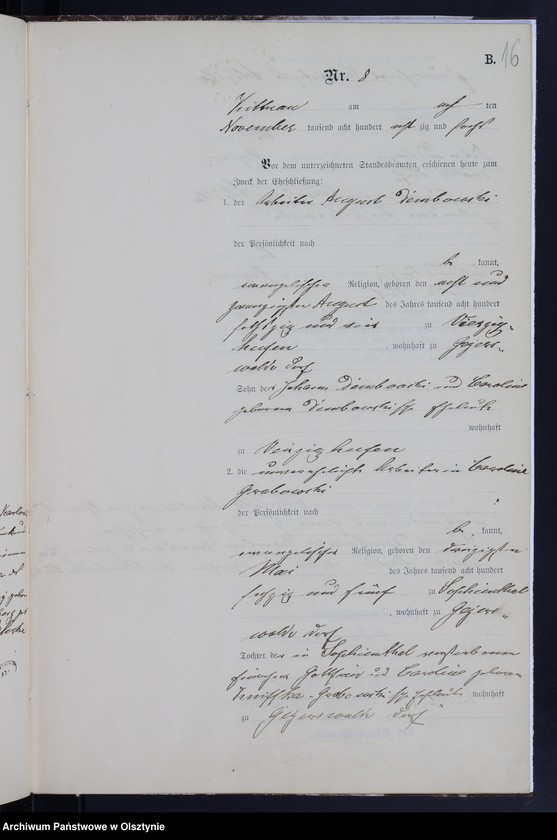 B. 16
Nr. 8
am ten
November tausend acht hundert acht zig und sechs
Vor dem unterzeichneten Standesbeamten erschienen heute zum
Zweck der Eheschließung:
1. der Arbeiter August Dembowski
der Persönlichkeit nach
be kannt,
evangelischer Religion, geboren den acht und
zwanzigsten August des Jahres tausend acht hundert
sechszig und vier zu Vierzig-
hufen , wohnhaft zu Geiers-
walde Dorf
Sohn der Johann Dembowski und Caroline
geborene Dembowski Eheleute
wohnhaft
zu Vierzighufen
2. die unverehelichte Arbeiterin Caroline
Grabowski
der Persönlichkeit nach
be kannt,
evangelischer Religion, geboren den dreißigsten
Mai des Jahres tausend acht hundert
sechszig und fünf zu Sophienthal
, wohnhaft zu Geiers-
walde Dorf
Tochter der in Sophienthal verstorbenen
Gottfried und Caroline geborene
Grabowski Eheleute wohnhaft
zu Geierswalde Dorf
Archiwum Państwowe w Olsztynie